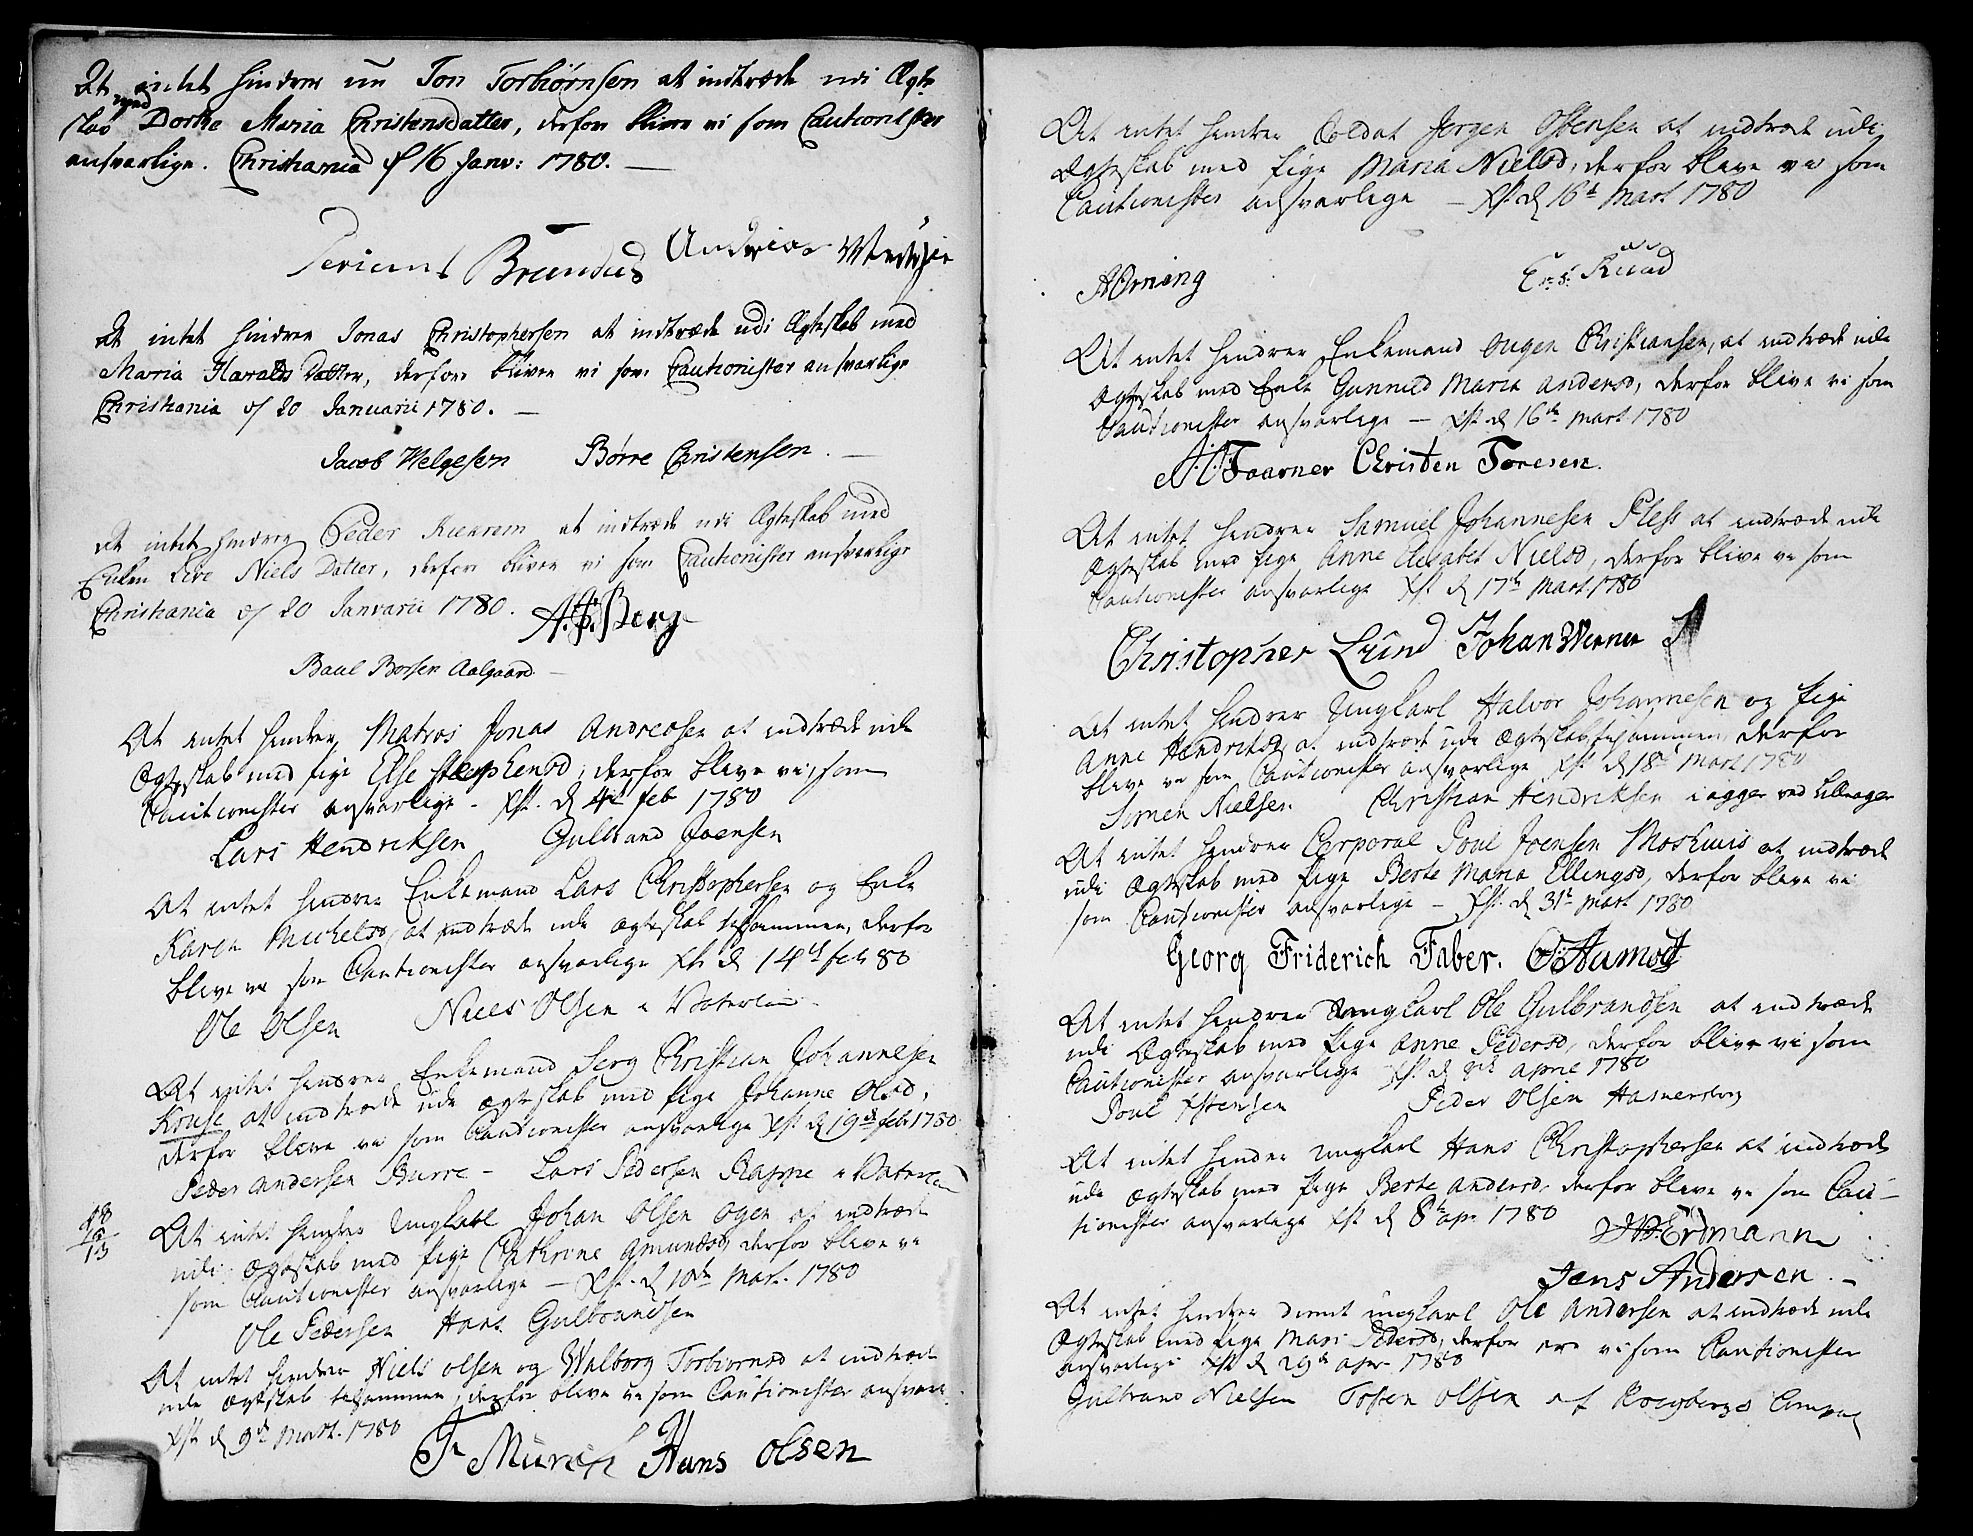 At intet hindrer Jon Torbiørnsen at indtræde udi Ægte
skab med Dorthe Maria Christensdatter, derfor blive vi som Cautionister
ansvarlige. Christiania d 16 Janv: 1780. —
Brundus Andreas
At intet hindrer Jonas Christophersen at indtræde udi Ægteskab med
Maria Haralds Datter, derfor bliver vi som Cautionister ansvarlige
Christiania d 20 Januarii 1780. —
Jacob Helgesen Børre Christensen. —
At intet hindrer Peder at indtræde udi Ægteskab med
Enken Live Niels Datter, derfor bliver vi som Cautionister ansvarlige
Christiania d 20 Januarii 1780.
A. Berg
Paul Borsen Aalgaard —
At intet hindrer Matros Jonas Andreasen at indtræde udi
Ægteskab med pige Else Stephensd, derfor blive vi som
Cautionister ansvarlige - Xst. d 4de feb 1780
Lars Hendriksen Gulbrand Joensen
At intet hindrer Enkemand Lars Christophersen og Enke
Karen Michelsd, at indtræde udi ægteskab tilsammen, derfor
blive vi som Cautionister ansvarlige Xst d 14de feb 80
Ole Olsen Niels Olsen i Vaterland
At intet hindrer Enkemand Christian Johannesen
Kruse at indtræde udi ægteskab med pige Johanne Olsd,
derfor blive vi som Cautionister ansvarlige Xst d 19de feb 1780
Peder Andersen Burre - Lars Pedersen Rappe i Vaterland
At intet hindrer Ungkarl Johan Olsen at indtræde
udi ægteskab med pige Cathrine Amundsd, derfor blive vi
som Cautionister ansvarlige — Xst. d 10de Mart. 1780
Ole Pedersen Hans Gulbrandsen
At intet hindrer Niels Olsen og Walborg Torbiørnsd at indtræde
udi ægteskab tilsammen, derfor blive vi som Cautionister ansvarl.
Xst d 9de Mart. 1780
Hans Olsen
At intet hindrer Soldat Jørgen Ostensen at indtræde udi
Ægteskab med pige Maria Nielsd, derfor blive vi som
Cautionister ansvarlige — Xst. d 16de Mart 1780
Ruud
At intet hindrer Enkemand Christiansen, at indtræde udi
Ægteskab med Enke Gunnild Maria Andersd, derfor blive vi som
Cautionister ansvarlige — Xst d 16de Mart 1780
Christen Toresen.
At intet hindrer Samuel Johannesen Pless at indtræde udi
Ægteskab med pige Anne Elisabet Nielsd, derfor blive vi som
Cautionister ansvarlige Xst. d 17de Mart. 1780
Christopher Lund Johan Werner
At intet hindrer Ungkarl Halvor Johannesen og pige
Anne Hendriksd, at indtræde udi Ægteskab tilsammen, derfor
blive vi som Cautionister ansvarlige Xst d 18de Mart 1780
Sørnen Nielsen Christian Hendriksen
At intet hindrer Corporal Poul Joensen Moshuus at indtræde
udi Ægteskab med pige Berte Maria Ellingsd, derfor blive vi
som Cautionister ansvarlige — Xst. d 31te Mart 1780
Georg Friderich Faber. Aamodt
At intet hindrer Ungkarl Ole Gulbrandsen at indtræde
udi Ægteskab med pige Anne Pedersd, derfor blive vi som
Cautionister ansvarlige Xst d april 1780
Poul Peder Olsen
At intet hindrer Ungkarl Hans Christophersen at indtræde
udi Ægteskab med pige Berte Andersd, derfor blive vi som Cau-
tionister ansvarlige Xst d 8de apr. 1780
Erdmann
Jens Andersen. —
At intet hindrer ungkarl Ole Andersen at indtræde udi
Ægteskab med pige Mari Pedersd, derfor ere vi som Cautionister
ansvarlige Xst d 29de apr. 1780
Gulbrand Nielsen Olsen af Compag